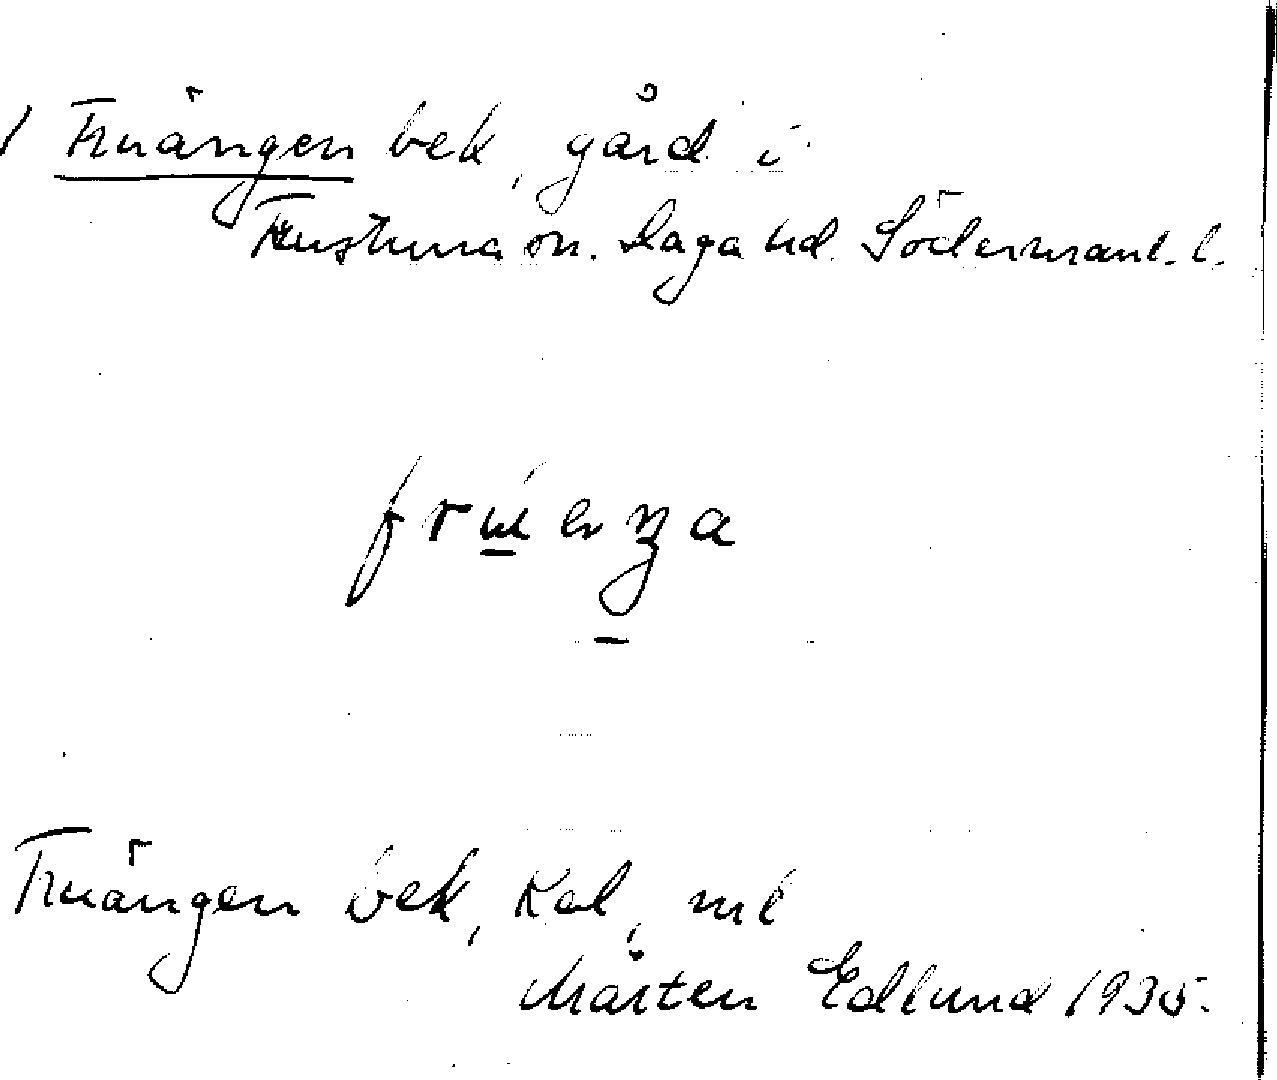 Fruängen bek, gård i
Frustuna sn. Daga hd. Södermanl. l.
Fruängen bek, Kol, ml
Mårten Edlund 1935.